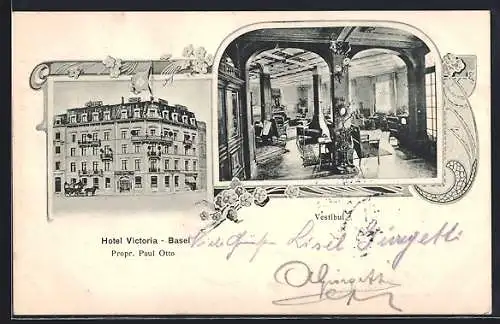 Vestibul.
Hotel Victoria - Basel
Propr. Paul Otto
Viele Grüße Lisel